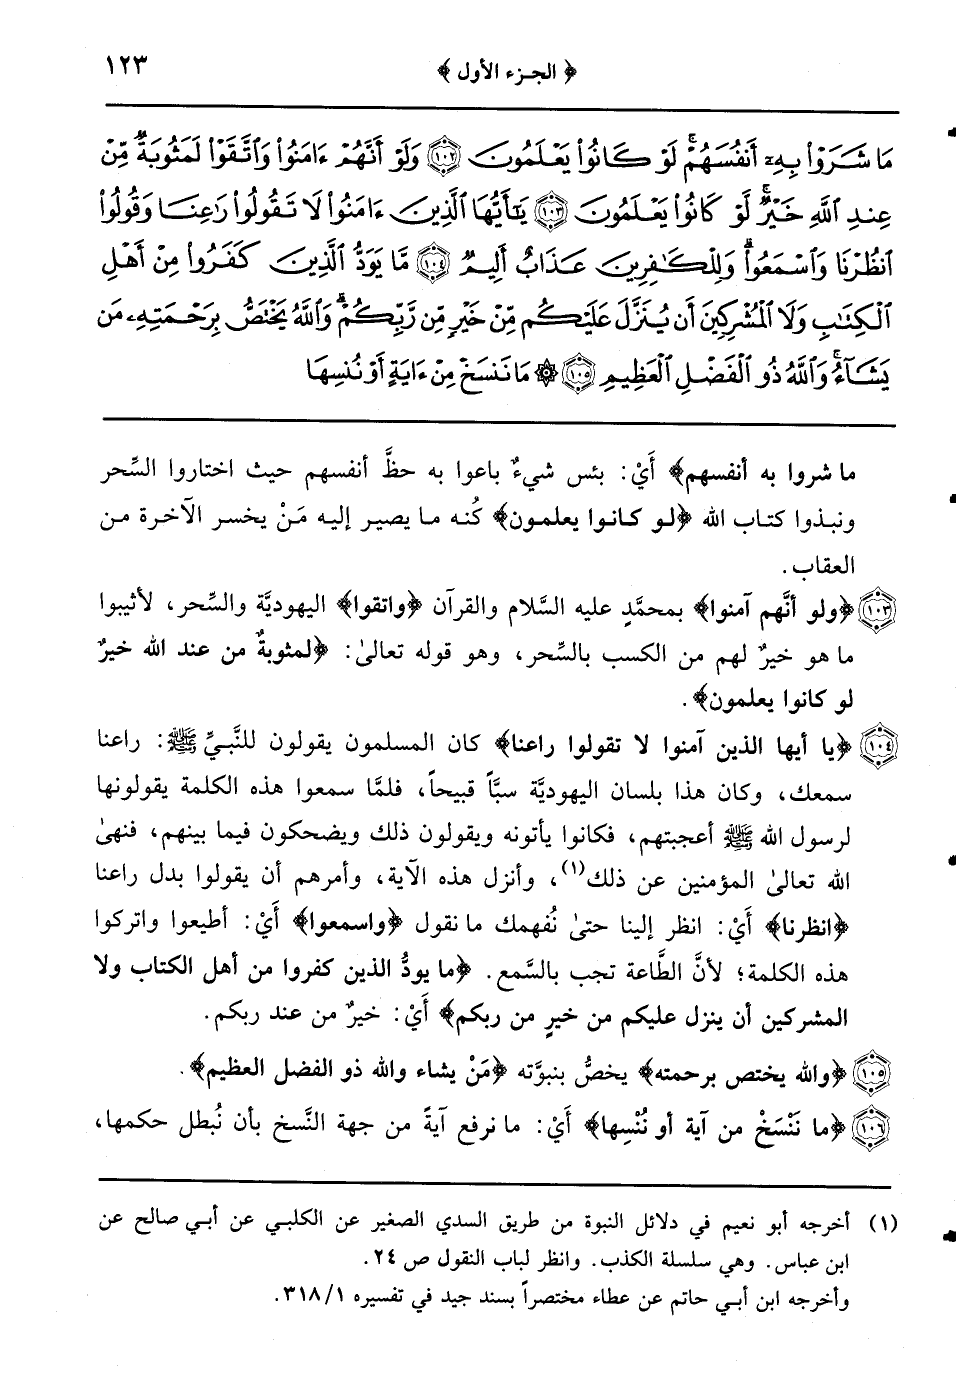 ﴿ الجزء الأول ﴾ ١٢٣
مَا شَرَوْا۟ بِهِۦٓ أَنفُسَهُمْ ۚ لَوْ كَانُوا۟ يَعْلَمُونَ ١٠٢ وَلَوْ أَنَّهُمْ ءَامَنُوا۟ وَٱتَّقَوْا۟ لَمَثُوبَةٌ مِّنْ
عِندِ ٱللَّهِ خَيْرٌ ۖ لَّوْ كَانُوا۟ يَعْلَمُونَ ١٠٣ يَٰٓأَيُّهَا ٱلَّذِينَ ءَامَنُوا۟ لَا تَقُولُوا۟ رَٰعِنَا وَقُولُوا۟
ٱنظُرْنَا وَٱسْمَعُوا۟ ۗ وَلِلْكَٰفِرِينَ عَذَابٌ أَلِيمٌ ١٠٤ مَّا يَوَدُّ ٱلَّذِينَ كَفَرُوا۟ مِنْ أَهْلِ
ٱلْكِتَٰبِ وَلَا ٱلْمُشْرِكِينَ أَن يُنَزَّلَ عَلَيْكُم مِّنْ خَيْرٍ مِّن رَّبِّكُمْ ۗ وَٱللَّهُ يَخْتَصُّ بِرَحْمَتِهِۦ مَن
يَشَآءُ ۚ وَٱللَّهُ ذُو ٱلْفَضْلِ ٱلْعَظِيمِ ١٠٥ ۞ مَا نَنسَخْ مِنْ ءَايَةٍ أَوْ نُنسِهَا
ما شروا به أنفسهم﴾ أَيْ: بئس شيءٌ باعوا به حظَّ أنفسهم حيث اختاروا السِّحر
ونبذوا كتاب الله ﴿لو كانوا يعلمون﴾ كُنه ما يصير إليه مَنْ يخسر الآخرة من
العقاب.
١٠٣ ﴿ولو أنَّهم آمنوا﴾ بمحمَّدٍ عليه السَّلام والقرآن ﴿واتقوا﴾ اليهوديَّة والسِّحر، لأثيبوا
ما هو خيرٌ لهم من الكسب بالسِّحر، وهو قوله تعالىٰ: ﴿لمثوبةٌ من عند الله خيرٌ
لو كانوا يعلمون﴾.
١٠٤ ﴿يا أيها الذين آمنوا لا تقولوا راعنا﴾ كان المسلمون يقولون للنَّبيِّ ﷺ: راعنا
سمعك، وكان هذا بلسان اليهوديَّة سبَّاً قبيحاً، فلمَّا سمعوا هذه الكلمة يقولونها
لرسول الله ﷺ أعجبتهم، فكانوا يأتونه ويقولون ذلك ويضحكون فيما بينهم، فنهىٰ
الله تعالىٰ المؤمنين عن ذلك(١)، وأنزل هذه الآية، وأمرهم أن يقولوا بدل راعنا
﴿انظرنا﴾ أَيْ: انظر إلينا حتىٰ نُفهمك ما نقول ﴿واسمعوا﴾ أَيْ: أطيعوا واتركوا
هذه الكلمة؛ لأنَّ الطَّاعة تجب بالسَّمع. ﴿ما يودُّ الذين كفروا من أهل الكتاب ولا
المشركين أن ينزل عليكم من خيرٍ من ربكم﴾ أَيْ: خيرٌ من عند ربكم.
١٠٥ ﴿والله يختص برحمته﴾ يخصُّ بنبوَّته ﴿مَنْ يشاء والله ذو الفضل العظيم﴾.
١٠٦ ﴿ما نَنْسَخْ من آية أو نُنْسِها﴾ أَيْ: ما نرفع آيةً من جهة النَّسخ بأن نُبطل حكمها،
(١) أخرجه أبو نعيم في دلائل النبوة من طريق السدي الصغير عن الكلبي عن أبي صالح عن
ابن عباس. وهي سلسلة الكذب. وانظر لباب النقول ص ٢٤.
وأخرجه ابن أبي حاتم عن عطاء مختصراً بسند جيد في تفسيره ٣١٨/١.